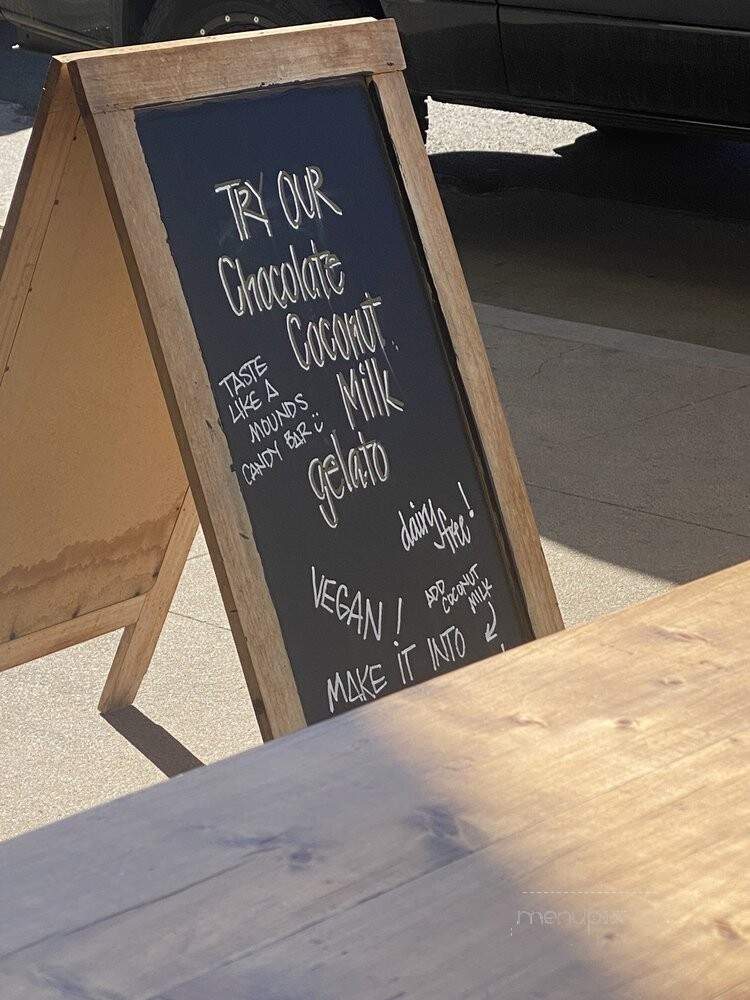 TRY OUR
Chocolate
Coconut
Milk
gelato
TASTE
LIKE A
MOUNDS
CANDY BAR
dairy
free!
VEGAN!
ADD
COCONUT
MILK
MAKE IT INTO
menupix